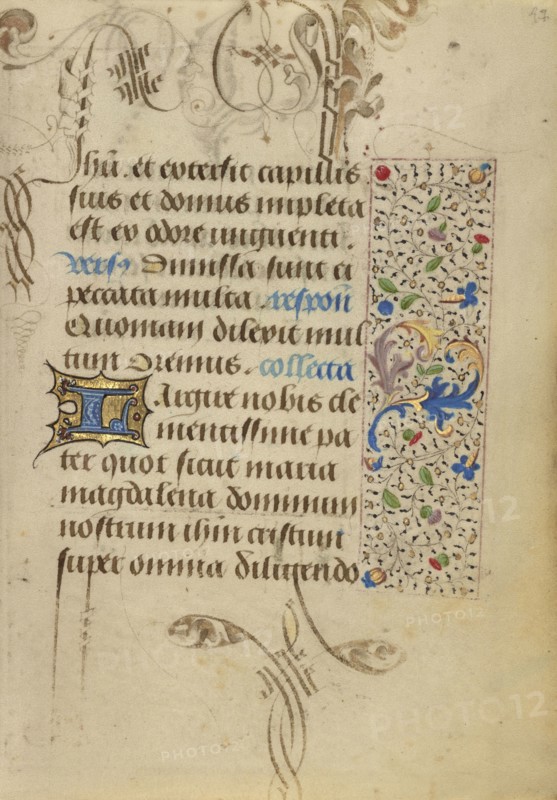 47
Jhu. et extersit capillis
suis et domus impleta
est ex odore unguenti.
vers9 Dimissa sunt ei
peccata multa. respon
Quoniam dilexit mul
tum Oremus. collecta
Largire nobis cle
mentissime pa
ter quot sicut maria
magdalena dominum
nostrum ihm cristum
super omnia diligendo
PHOTO12